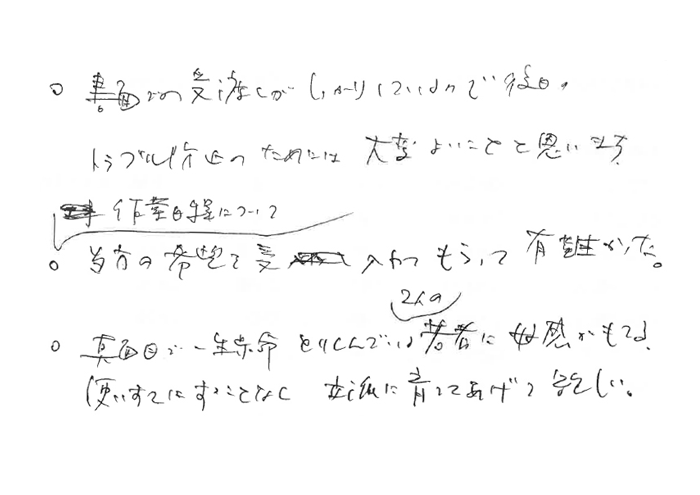 ○ 書面での受渡しがしっかりしているので後日の
トラブル防止のためには大変よいことと思います
作業日程について
○ 当方の希望を受入れてもらって有難かった。
2人の
○ 真面目で一生懸命とりくんでいる若者に好感がもてる
使いすてにすることなく立派に育ててあげて欲しい。